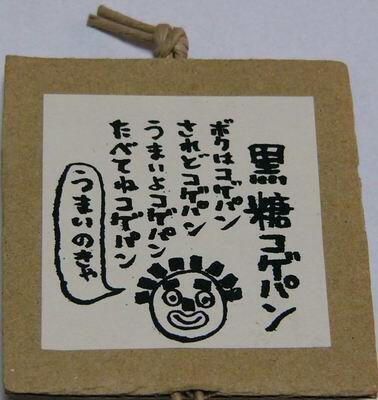 黒糖コゲパン
ボクはコゲパン
されどコゲパン
うまいよコゲパン
たべてねコゲパン
うまいのきゃ